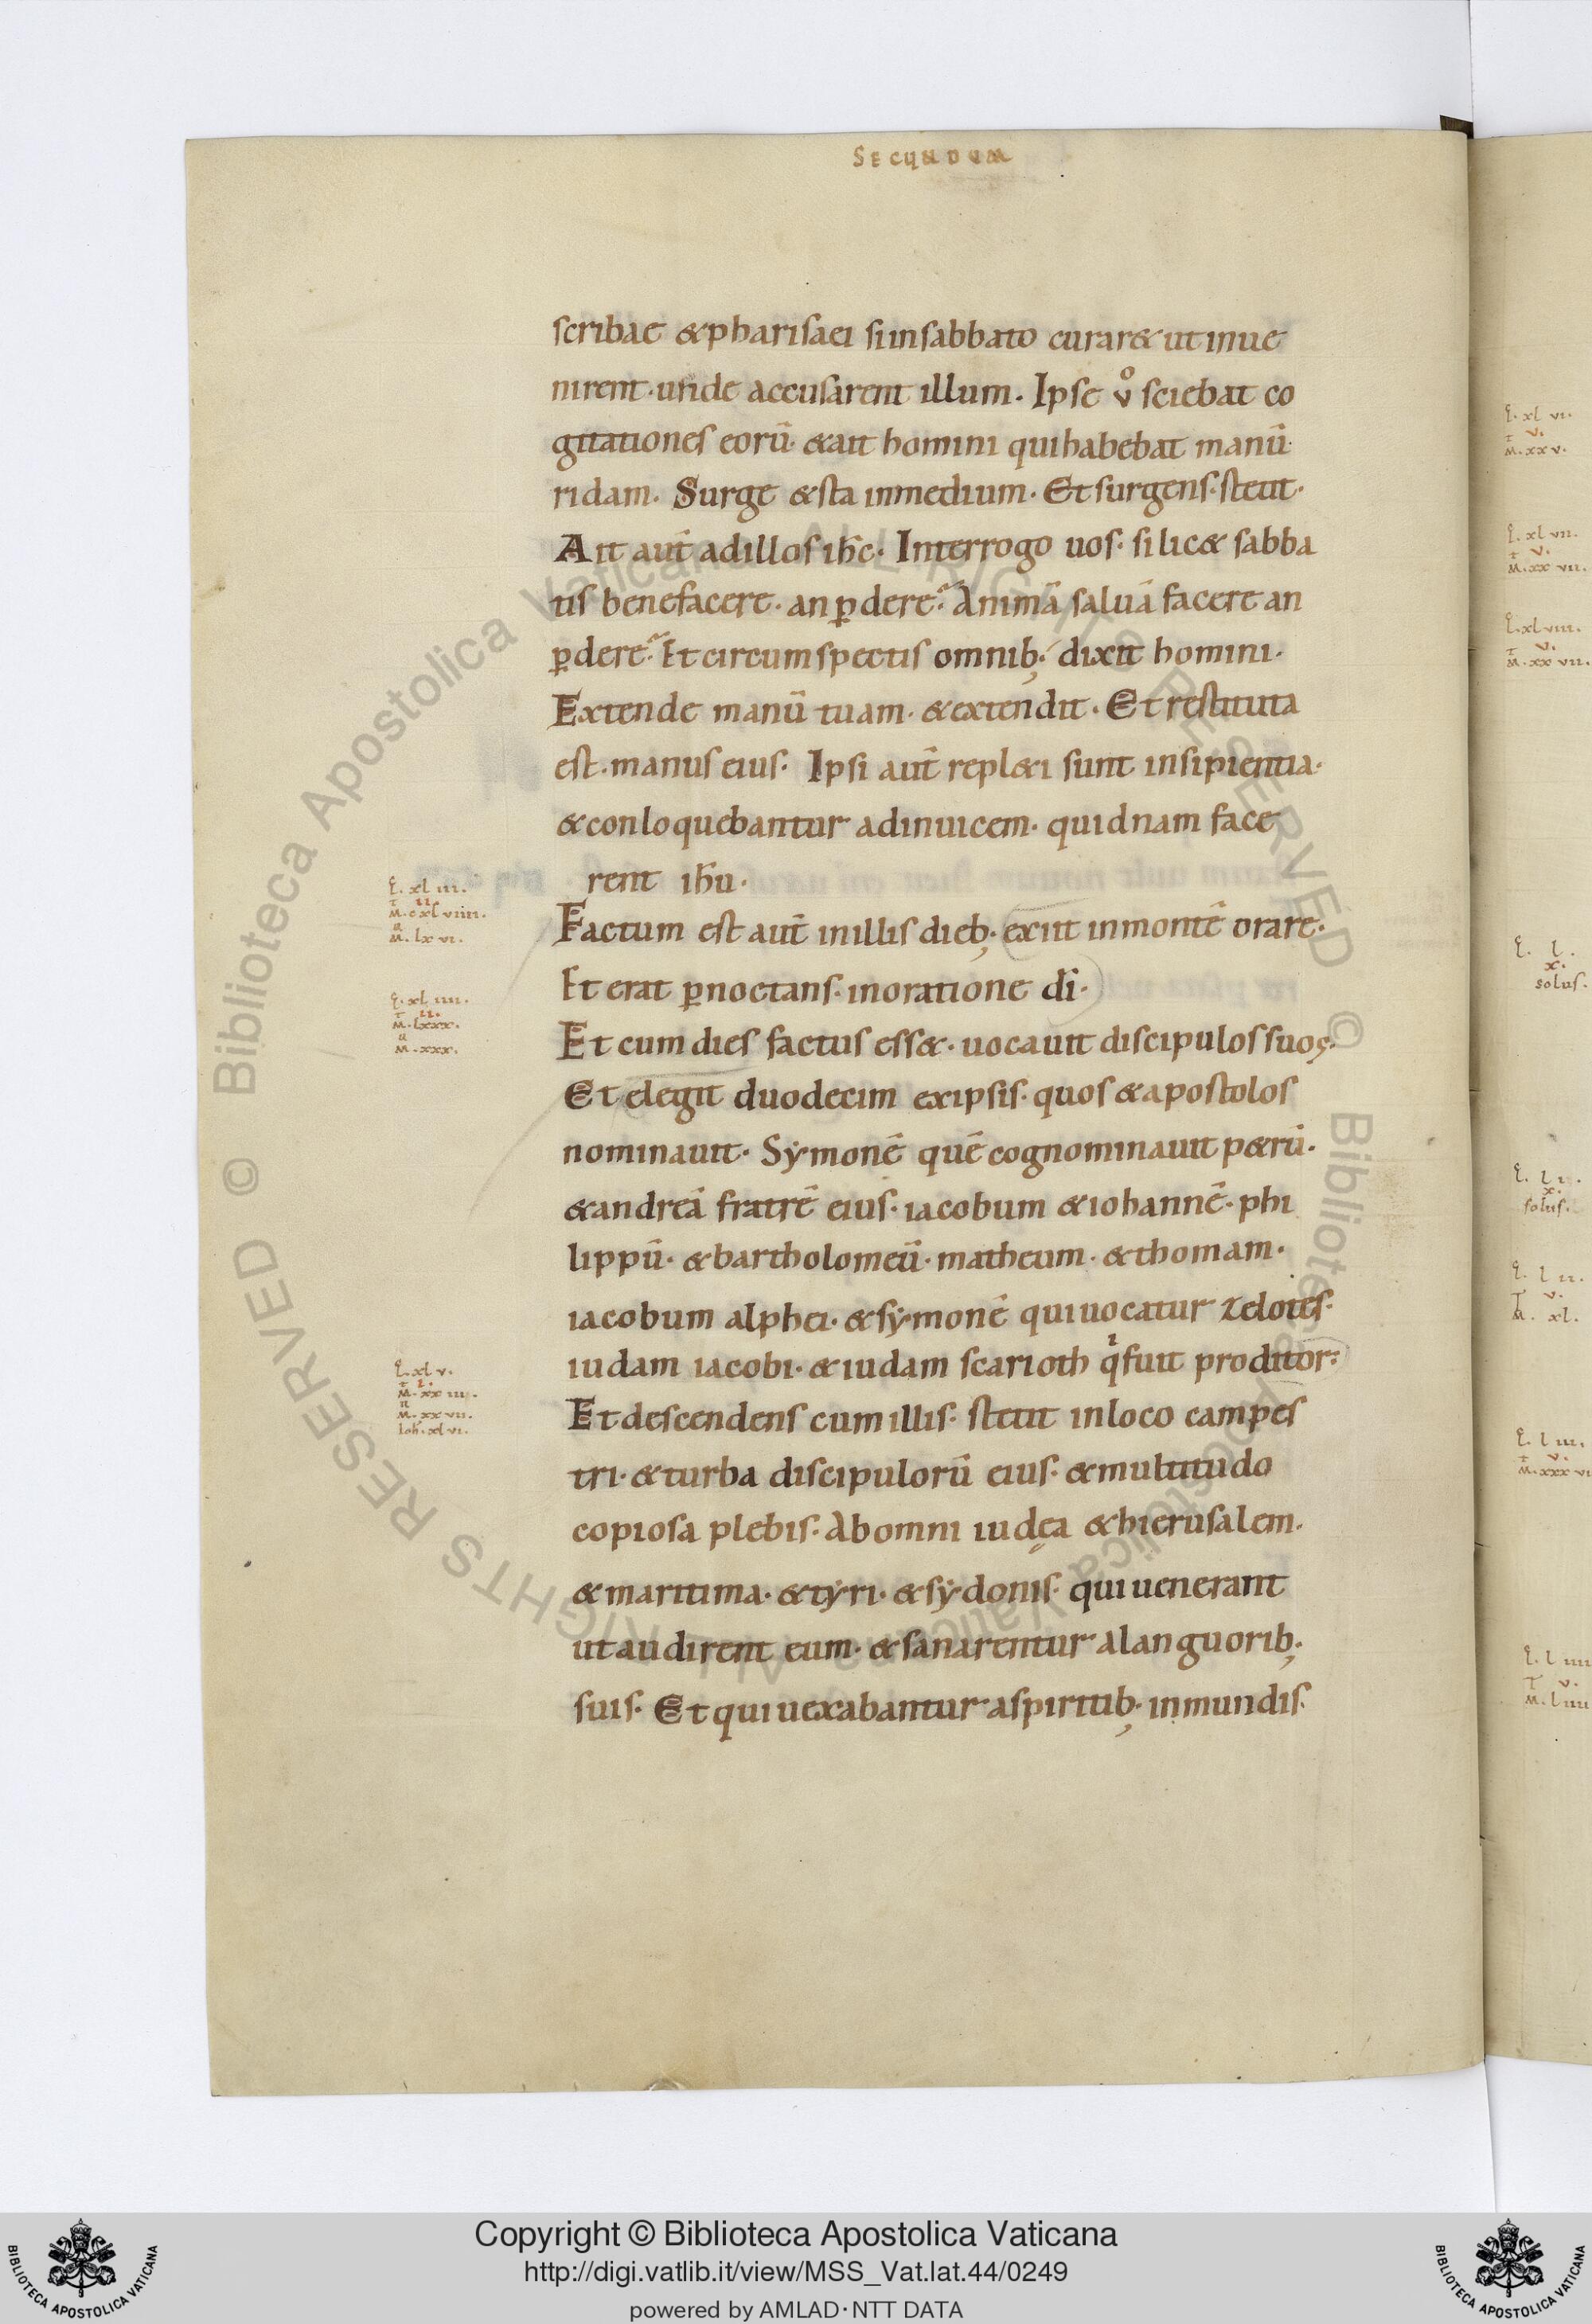 SECUNDUM
scribae & pharisaei si in sabbato curar& ut inue
nirent · unde accusarent illum · Ipse v̊ sciebat co
gitationes eorū · & ait homini qui habebat manū
ridam · Surge & sta in medium · Et surgens · stetit ·
Ait aut̄ ad illos ih̄c · Interrogo uos · si lic& sabba
tis benefacere · an ꝑdere · Animā saluā facere an
ꝑdere · Et circumspectis omnib; · dixit homini ·
Extende manū tuam · & extendit · Et restituta
est · manus eius · Ipsi aut̄ repl&i sunt insipientia ·
& conloquebantur adinuicem · quidnam face
rent ih̄u ·
Factum est aut̄ in illis dieb; · exiit in montē orare ·
Et erat ꝑnoctans · in oratione dī ·
Et cum dies factus ess& · uocauit discipulos suos ·
Et elegit duodecim ex ipsis · quos & apostolos
nominauit · Sẏmonē quē cognominauit p&rū ·
& andreā fratrē eius · iacobum & iohannē · phi
lippū · & bartholomeū · matheum · & thomam ·
iacobum alphei · & sẏmonē qui uocatur zelotes ·
iudam iacobi · & iudam scarioth qͥ fuit proditor ·
Et descendens cum illis · stetit in loco campes
tri · & turba discipulorū eius · & multitudo
copiosa plebis · Ab omni iudęa & hierusalem ·
& maritima · & tẏri · & sẏdonis · qui uenerant
ut audirent eum · & sanarentur a languorib; ·
suis · Et qui uexabantur a spiritib; · inmundis ·
L. xl iii.
ii.
M. cxl viiii.
M. lx vi.
L. xl iiii.
ii.
M. lxxx.
M. xxx.
L. xl v.
M. xx vii.
Ioh. xl vi.
L. xl vi.
v.
M. xx v.
L. xl vii.
v.
M. xx vii.
L. xl viii.
v.
M. xx vii.
L. l.
x.
solus.
L. l i.
x.
solus.
L. l ii.
v.
M. xl.
L. l iii.
v.
L. l iiii
v.
Copyright © Biblioteca Apostolica Vaticana
http://digi.vatlib.it/view/MSS_Vat.lat.44/0249
powered by AMLAD · NTT DATA
BIBLIOTECA APOSTOLICA VATICANA
BIBLIOTECA APOSTOLICA VATICANA
© Biblioteca Apostolica Vaticana ALL RIGHTS RESERVED
© Biblioteca Apostolica Vaticana ALL RIGHTS RESERVED